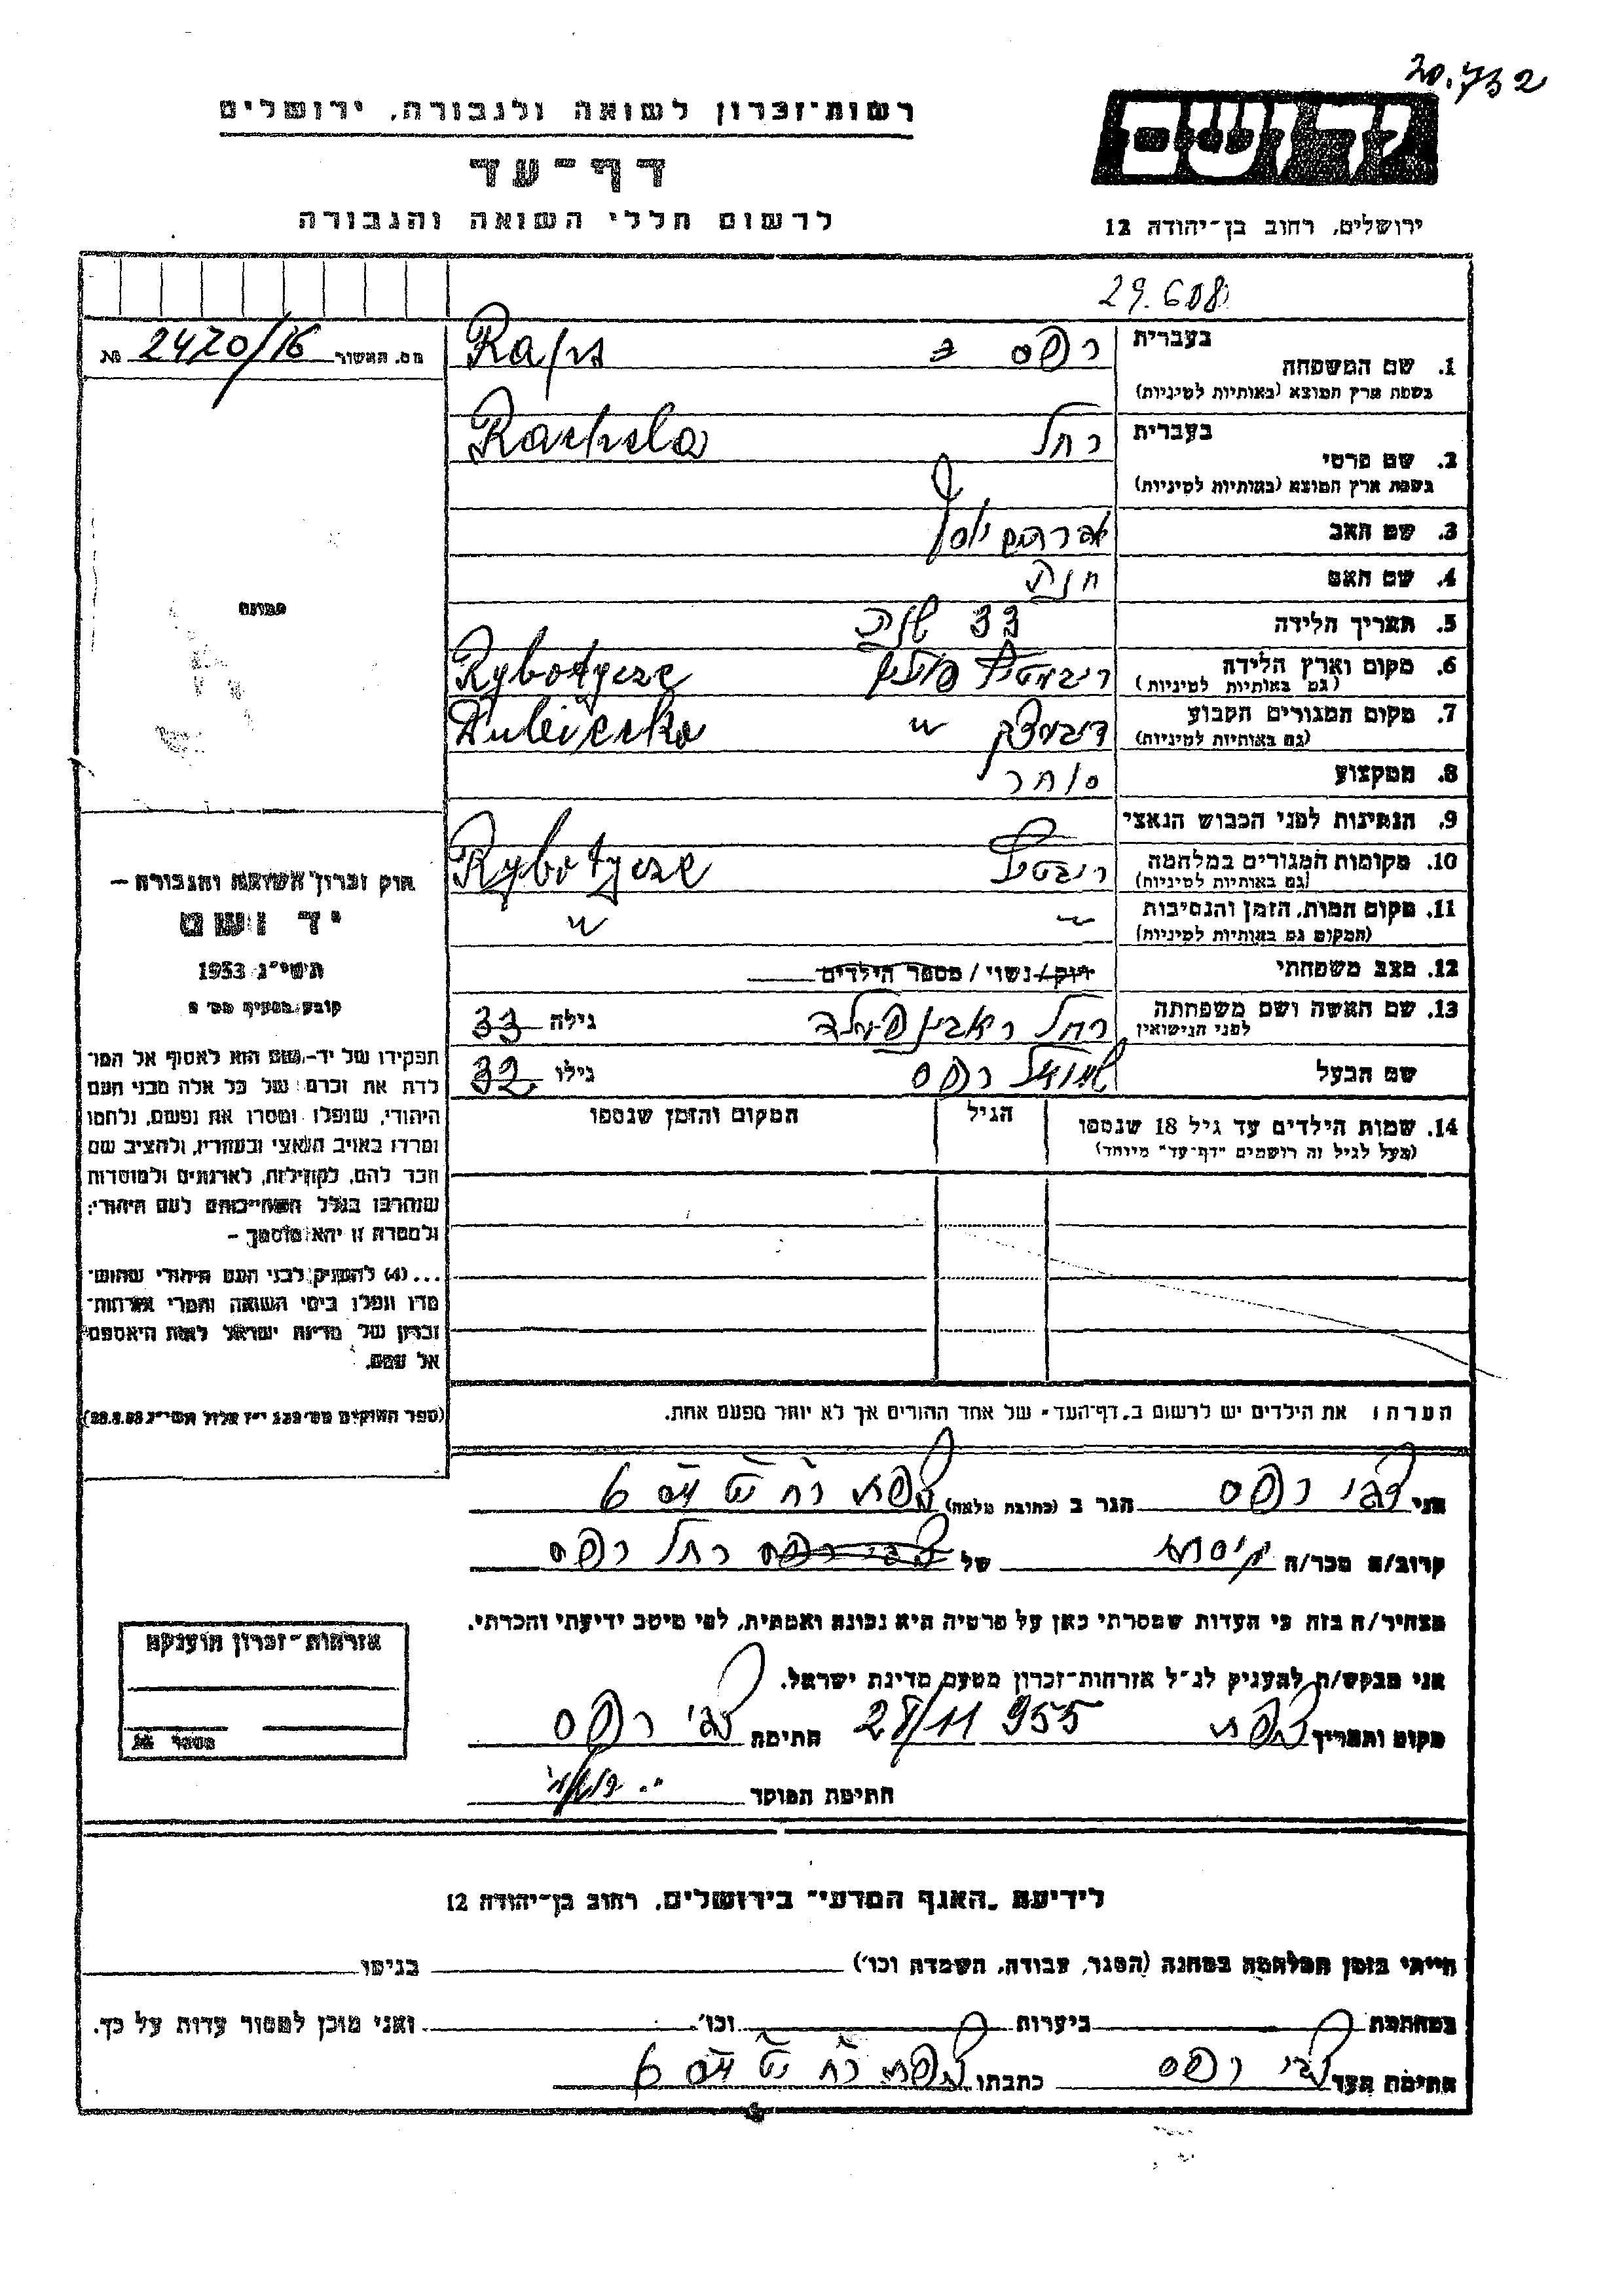 20.732
רשות־זכרון לשואה ולגבורה, ירושלים
ידושם
דף־עד
לרשום חללי השואה והגבורה
ירושלים, רחוב בן־יהודה 12
29.608
מס. האשור 2420/16 №
בעברית
רפס
1. שם המשפחה
בשפת ארץ המוצא (באותיות לטיניות)
בעברית רחל Rachela
2. שם פרטי
בשפת ארץ המוצא (באותיות לטיניות)
3. שם האב אברהם יוסף
4. שם האם חנה
תמונה
5. תאריך הלידה 33 שנה
6. מקום וארץ הלידה Rybotycze
(גם באותיות לטיניות)
7. מקום המגורים הקבוע
(גם באותיות לטיניות)
8. המקצוע סוחר
9. הנתינות לפני הכבוש הנאצי
10. מקומות המגורים במלחמה Rybotycze
(גם באותיות לטיניות)
11. מקום המות, הזמן והנסיבות
(המקום גם באותיות לטיניות)
12. מצב משפחתי רוק/נשוי/מספר הילדים
13. שם האשה ושם משפחתה רחל גילה 33
לפני הנישואין
שם הבעל שמואל רפס גילו 32
14. שמות הילדים עד גיל 18 שנספו הגיל המקום והזמן שנספו
(מעל לגיל זה רושמים "דף־עד" מיוחד)
חוק זכרון השואה והגבורה –
יד ושם
תשי"ג 1953
קובע בסעיף מס' 2
תפקידו של יד־ושם הוא לאסוף אל המו־
לדת את זכרם של כל אלה מבני העם
היהודי, שנפלו ומסרו את נפשם, נלחמו
ומרדו באויב הנאצי ובעוזריו, ולהציב שם
וזכר להם, לקהילות, לארגונים ולמוסדות
שנחרבו בגלל השתייכותם לעם היהודי;
ולמטרה זו יהא מוסמך –
...(4) להעניק לבני העם היהודי שהוש־
מדו ונפלו בימי השואה והמרי אזרחות־
זכרון של מדינת ישראל לאות היאספם
אל עמם.
(ספר החוקים מס' 132 י"ז אלול תשי"ג 28.8.53)
הערה: את הילדים יש לרשום ב"דף־העד" של אחד ההורים אך לא יותר מפעם אחת.
אני צבי רפס הגר ב (כתובת מלאה) 6
קרוב/ה מכר/ה גיסה של רחל רפס
מצהיר/ה בזה כי העדות שמסרתי כאן על פרטיה היא נכונה ואמתית, לפי מיטב ידיעתי והכרתי.
אני מבקש/ת להעניק לנ"ל אזרחות־זכרון מטעם מדינת ישראל.
מקום ותאריך צפת 28/11 955 חתימה צבי רפס
חתימת המוסד
אזרחות־זכרון הוענקה
מספר №
לידיעת "האגף המדעי" בירושלים, רחוב בן־יהודה 12
הייתי בזמן המלחמה במחנה (הסגר, עבודה, השמדה וכו') בגיטו
במחתרת ביערות וכו' ואני מוכן למסור עדות על כך.
חתימת העד צבי רפס כתבתו 6